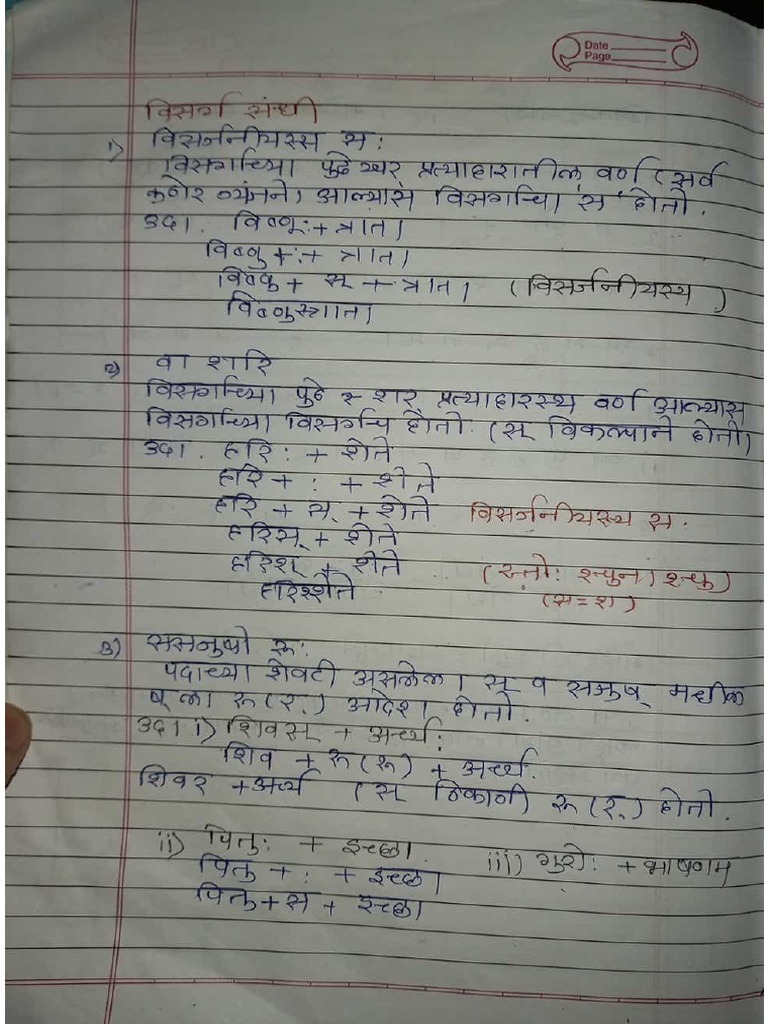 Date
Page
विसर्ग संधी
१) विसर्जनीयस्स स:
विसर्गाच्या पुढे खर् प्रत्याहारातील वर्ण (सर्व
कठोर व्यंजने) आल्यास विसर्गाचा स् होतो.
उदा. विष्णू: + त्राता
विष्णु + : + त्राता
विष्णु + स् + त्राता (विसर्जनीयस्य )
विष्णुस्त्राता
२) वा शरि
विसर्गाच्या पुढे शर् प्रत्याहारस्थ वर्ण आल्यास
विसर्गाच्या विसर्गच होतो. (स् विकल्पाने होतो)
उदा. हरि : + शेते
हरि + : + शेते
हरि + स् + शेते विसर्जनीयस्य स.
हरिस् + शेते
हरिश् + शेते (स्तो: श्चुना श्चु)
हरिश्शेते (स = श)
३) ससजुषो रू:
पदाच्या शेवटी असलेला स् व सजुष् मधील
ष् ला रू (र्) आदेश होतो.
उदा i) शिवस् + अर्च्य:
शिव + रू (रू) + अर्च्य.
शिवर + अर्च्य (स् ठिकाणी) रू (र्) होतो.
ii) पितु: + इच्छा iii) गुरो: + भाषणम
पितु + : + इच्छा
पितु + स + इच्छा